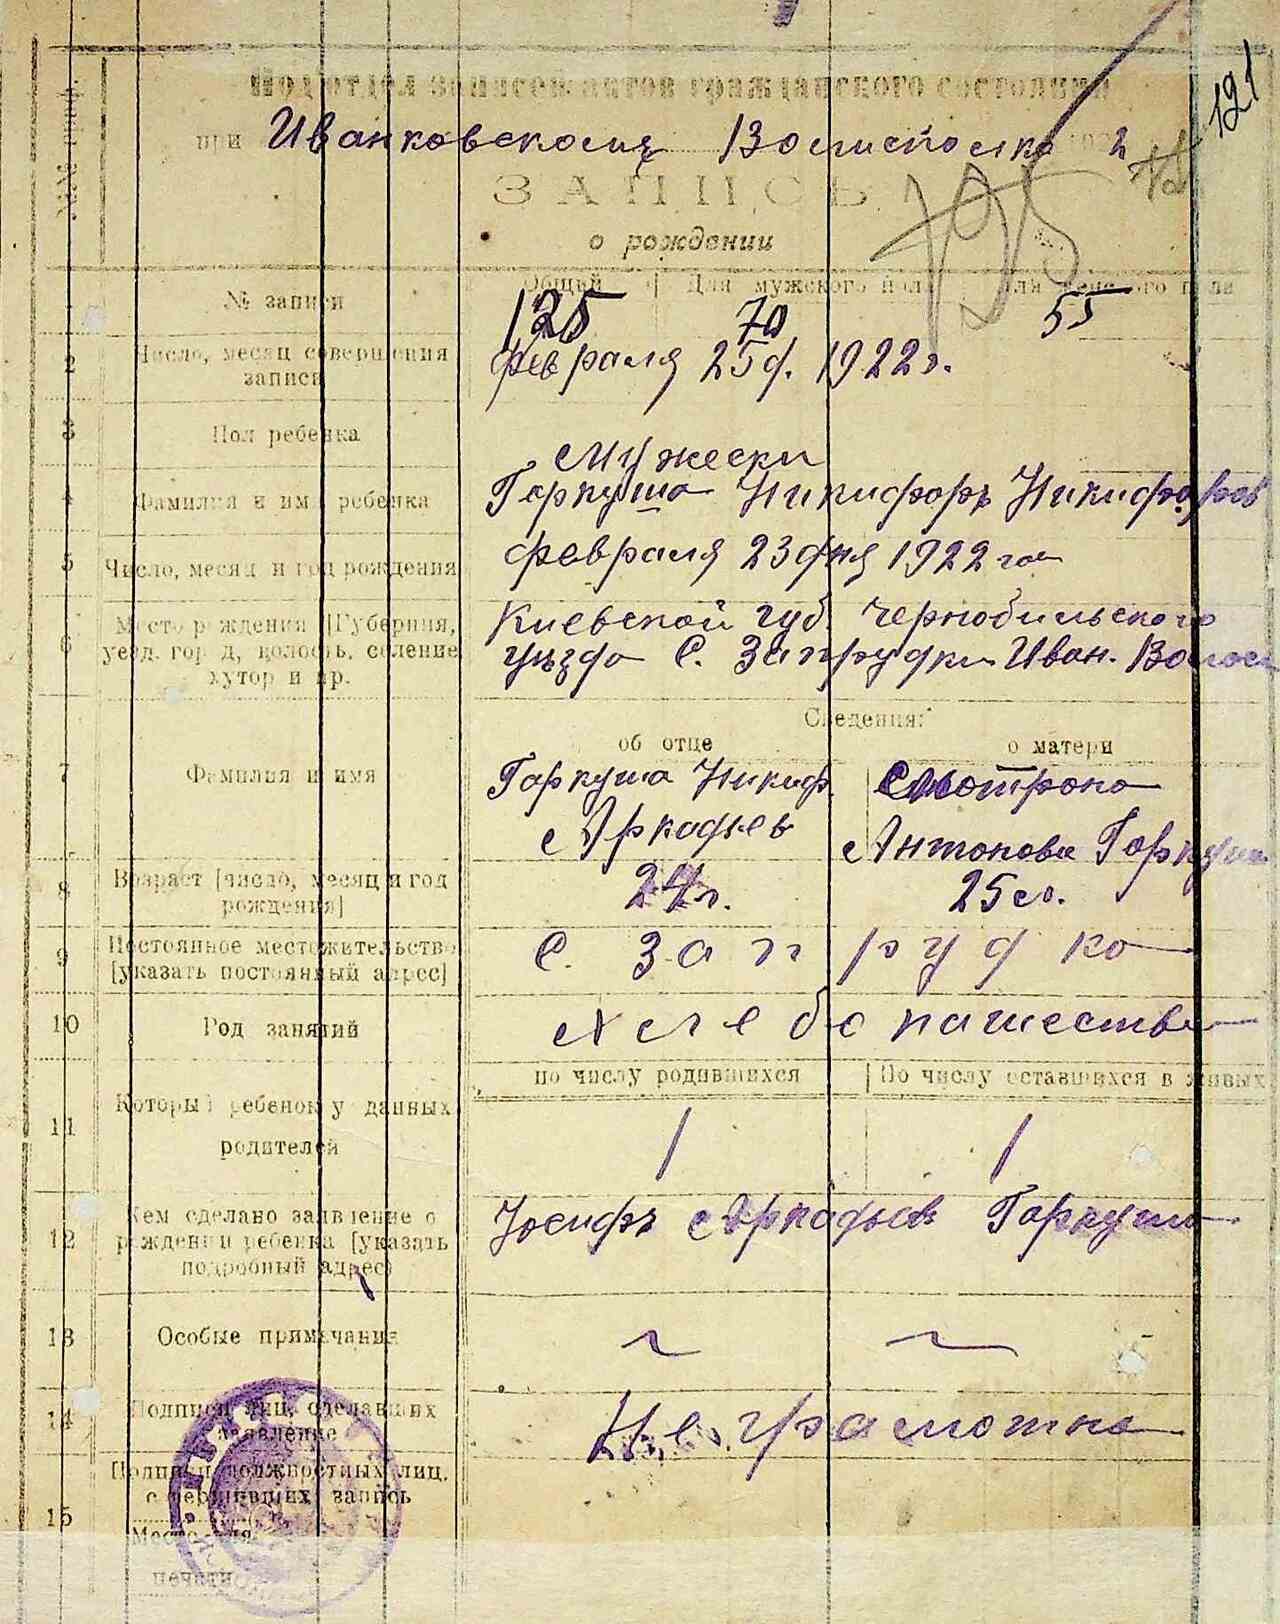 121
Подотдел записей актов гражданского состояния
при Иванковском Волисполко
ЗАПИСЬ
195
о рождении
Общий Для мужского пола Для женского пола
1 № записи 125 70 55
2 Число, месяц совершения записи
Февраля 25 д. 1922 г.
3 Пол ребенка
Мужески
4 Фамилия и имя ребенка
Гаркуша Никифоръ Никифоров
5 Число, месяц и год рождения
февраля 23 дня 1922 го
6 Место рождения [Губерния,
уезд, город, волость, селение
хутор и пр.
Киевской губ. Чернобильского
уъзда С. Запрудки Иван. Волос
Сведения:
об отце о матери
7 Фамилия и имя
Гаркуша Никиф.
Аркадьев
Мотрона
Антонова Гаркуша
8 Возраст [число, месяц и год
рождения]
24 г. 25 л.
9 Постоянное местожительство
[указать постоянный адрес]
С. Запрудка
10 Род занятий
Хлебопашество
по числу родившихся По числу оставшихся в живых
11 Который ребенок у данных
родителей
1 1
12 Кем сделано заявление о
рождении ребенка [указать
подробный адрес]
Иосифъ Аркадьев Гаркуша
13 Особые примечания
14 Подписи лиц, сделавших
заявление
Неграмотна
15 Подписи должностных лиц,
совершивших запись
Место для
печати